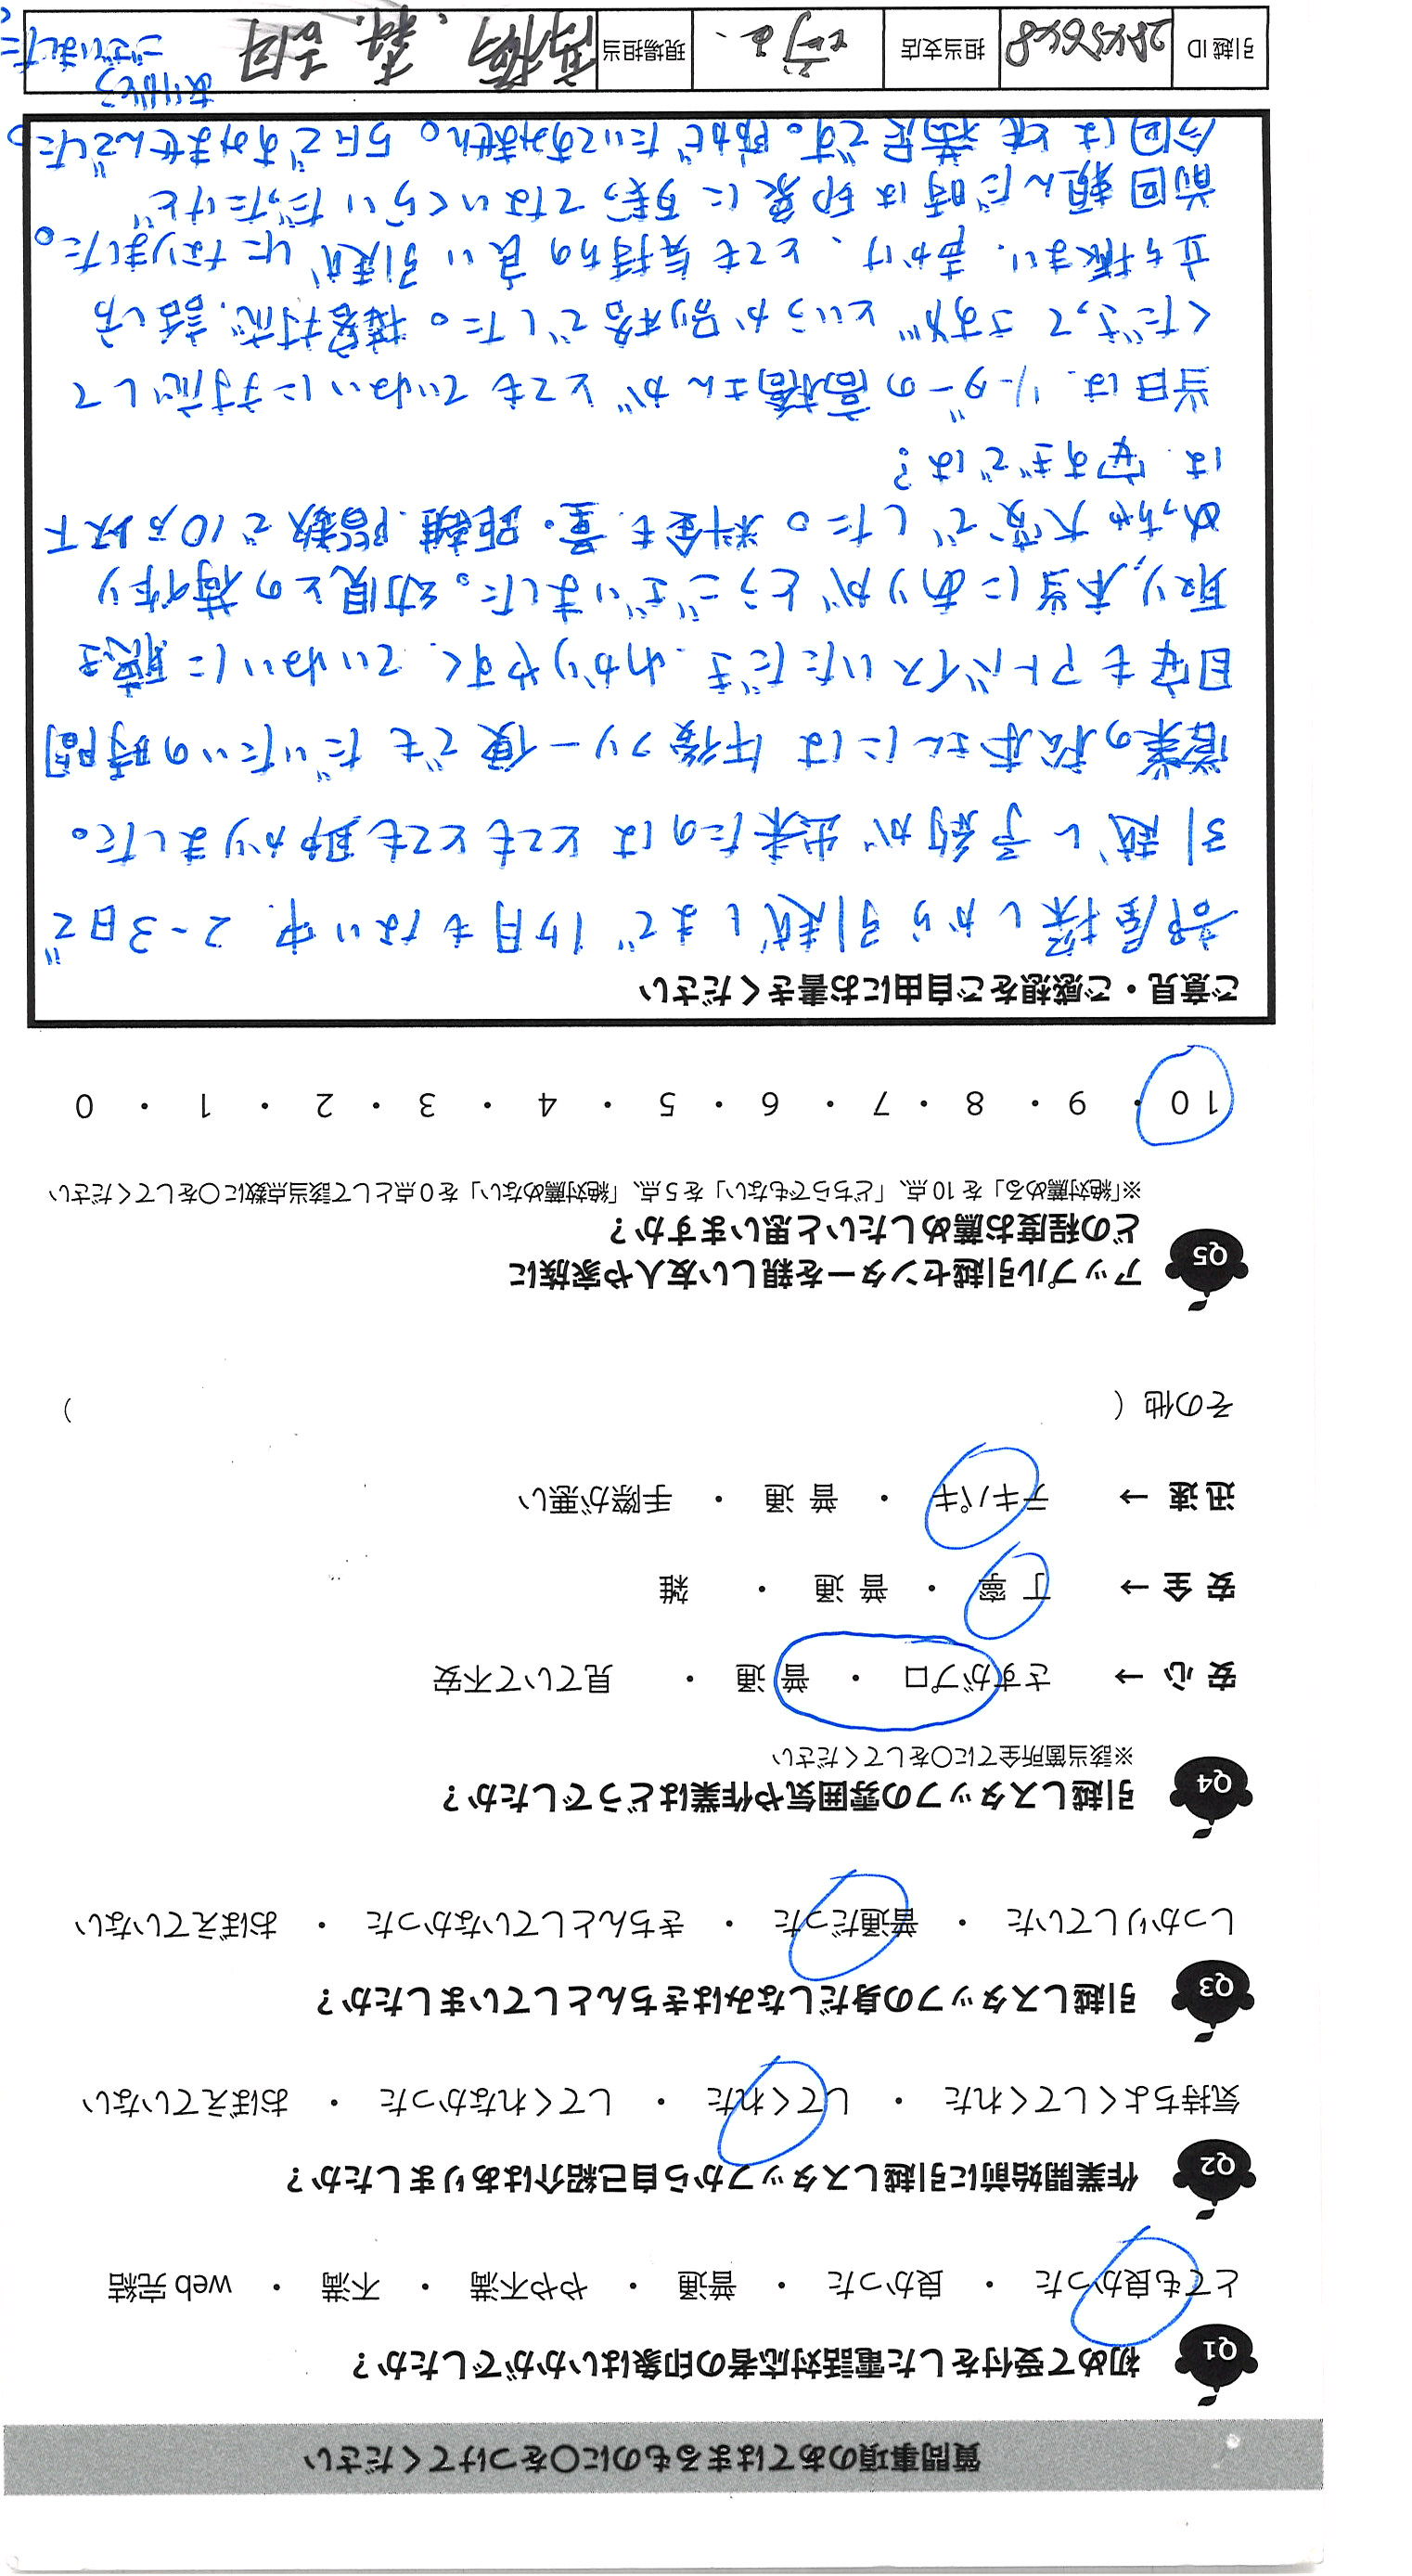 質問事項のあてはまるものに〇をつけてください
Q1 初めて受付をした電話対応者の印象はいかがでしたか？
とても良かった ・ 良かった ・ 普通 ・ やや不満 ・ 不満 ・ web 完結
Q2 作業開始前に引越しスタッフから自己紹介はありましたか？
気持ちよくしてくれた ・ してくれた ・ してくれなかった ・ おぼえていない
Q3 引越しスタッフの身だしなみはきちんとしていましたか？
しっかりしていた ・ 普通だった ・ きちんとしていなかった ・ おぼえていない
Q4 引越しスタッフの雰囲気や作業はどうでしたか？
※該当箇所全てに〇をしてください
安 心 → さすがプロ ・ 普 通 ・ 見ていて不安
安 全 → 丁 寧 ・ 普 通 ・ 雑
迅 速 → テキパキ ・ 普 通 ・ 手際が悪い
その他（ ）
Q5 アップル引越センターを親しい友人や家族に
どの程度お薦めしたいと思いますか？
※「絶対薦める」を 10 点、「どちらでもない」を 5 点、「絶対薦めない」を 0 点として該当点数に〇をしてください
10 ・ 9 ・ 8 ・ 7 ・ 6 ・ 5 ・ 4 ・ 3 ・ 2 ・ 1 ・ 0
ご意見・ご感想をご自由にお書きください
部屋探しから引越しまで1ヶ月もない中、2~3日で
引越し予約が出来たのはとてもとても助かりました。
営業の松本さんには午後フリー便でもだいたいの時間
目安もアドバイスいただき、わかりやすく、ていねいに聴き
取り、本当にありがとうございました。幼児との荷作り
めっちゃ大変でした。料金も、量・距離、階数で10万以下
は、安すぎでは？
当日は、リーダーの高橋さんがとてもていねいに対応して
くださって、さすがというか別格でした。接客対応、話し方
立ち振まい、声かけ、とても気持ちの良い引越しになりました。
前回頼んだ時は印象に残ってないくらいだったけど
今回は大満足です。階がだいてすみません。5Fですみませんでした
ありがとう
ございました
引越 ID
担当支店
現場担当 高橋、森、吉田